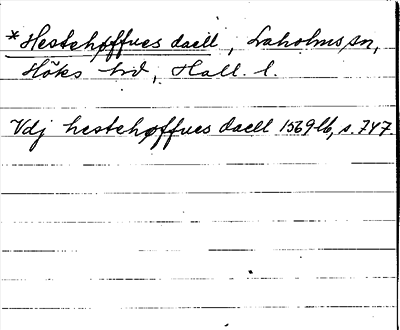 *Hestehøffues daell, Laholms sn,
Höks hd, Hall. l.
Vdj hestehøffues daell 1569 lb, s. 747.